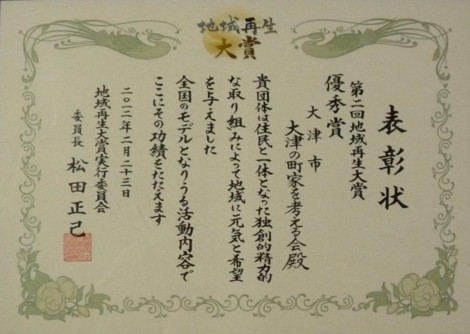 地域再生
大賞
表彰状
第二回地域再生大賞
優秀賞
大津市
大津の町家を考える会殿
貴団体は住民と一体となった独創的精力的
な取り組みによって地域に元気と希望
を与えました
全国のモデルとなりうる活動内容で
ここにその功績をたたえます
二〇一二年二月二十三日
地域再生大賞実行委員会
委員長 松田正己